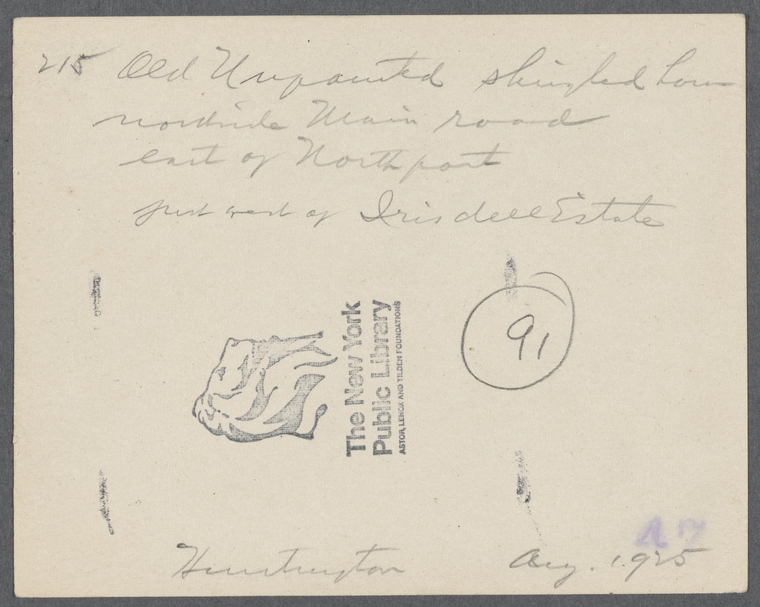 215 Old Unpainted shingled house
northside Main road
east of Northport
just west of Irisdell Estate
The New York
Public Library
ASTOR, LENOX AND TILDEN FOUNDATIONS
91
Huntington Aug. 1925